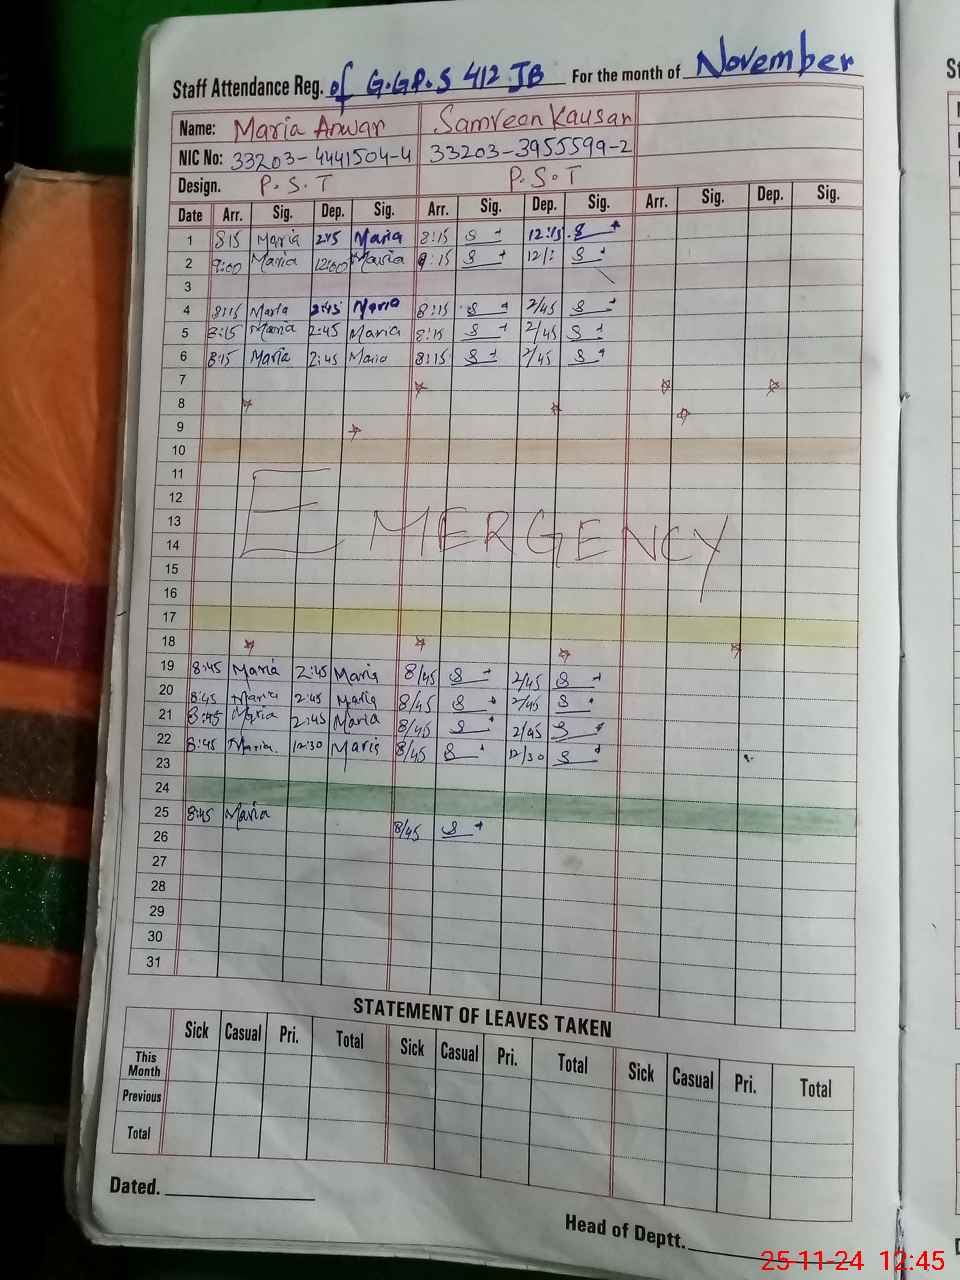 Staff Attendance Reg. of G.GP.S 412 JB For the month of November
Name: Maria Anwar Samreen Kausar
NIC No: 33203-4441504-4 33203-3955599-2
Design. P.S.T P.S.T
Date Arr. Sig. Dep. Sig. Arr. Sig. Dep. Sig. Arr. Sig. Dep. Sig.
1 8:15 Maria 2:45 Maria 8:15 12:15
2 9:00 Maria 12:00 Maria 9:15
3
4 8:15 Maria 2:45 Maria 8:15 2/45
5 8:15 Maria 2:45 Maria 8:15 2/45
6 8:15 Maria 2:45 Maria 8:15 2/45
7
8
9
10
11
12
EMERGENCY
13
14
15
16
17
18
19 8:45 Maria 2:45 Maria 8/45 2/45
20 8:45 Maria 2:45 Maria 8/45 2/45
21 8:45 Maria 2:45 Maria 8/45 2/45
22 8:45 Maria 12:30 Maria 8/45 12/30
23
24
25 8:45 Maria 8/45
26
27
28
29
30
31
STATEMENT OF LEAVES TAKEN
Sick Casual Pri. Total Sick Casual Pri. Total Sick Casual Pri. Total
This Month
Previous
Total
Dated.
Head of Deptt.
25-11-24 12:45